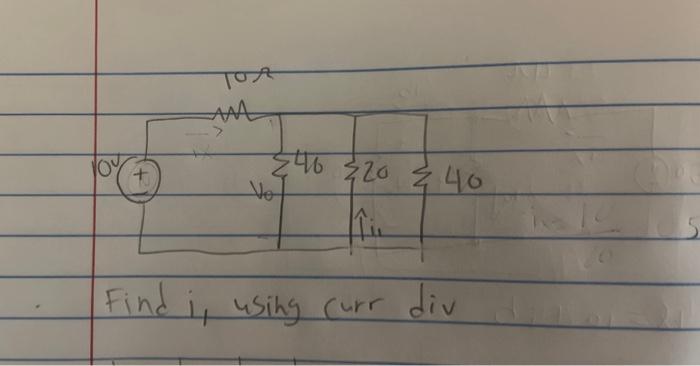 10Ω
ix
10V
+
Vo
40
20
40
i1
Find i, using curr div